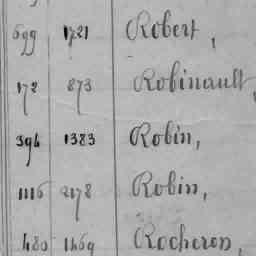 699 1721 Robert,
172 873 Robinault,
396 1383 Robin,
1116 2178 Robin,
480 1469 Rocheron,